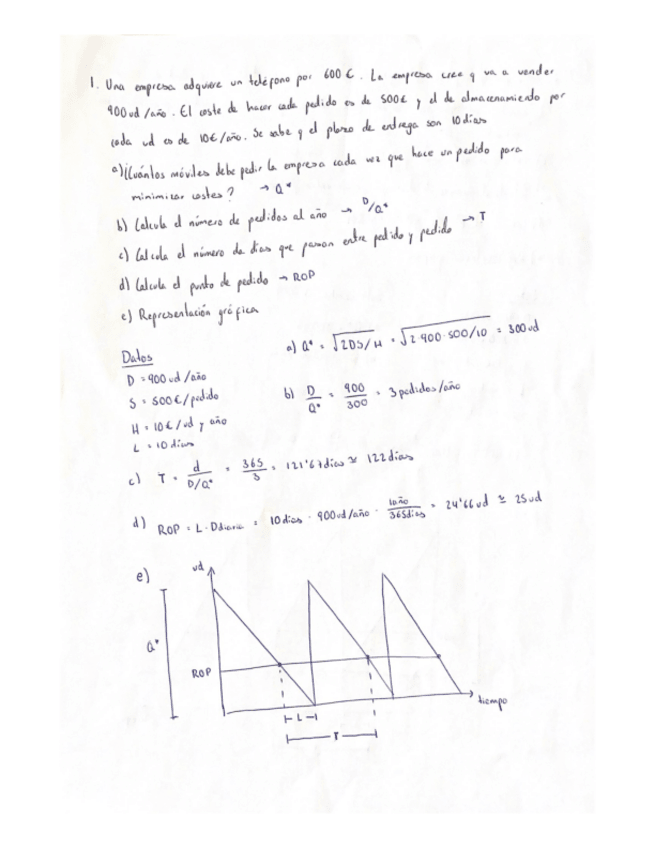 1. Una empresa adquiere un teléfono por 600 €. La empresa cree q va a vender
900 ud/año. El coste de hacer cada pedido es de 500€ y el de almacenamiento por
cada ud es de 10€/año. Se sabe q el plazo de entrega son 10 días
a) ¿Cuántos móviles debe pedir la empresa cada vez que hace un pedido para
minimizar costes? → Q*
b) Calcula el número de pedidos al año → D/Q*
c) Calcula el número de días que pasan entre pedido y pedido → T
d) Calcula el punto de pedido → ROP
e) Representación gráfica
Datos
D = 900 ud/año
S = 500€/pedido
H = 10€/ud y año
L = 10 días
a) Q* = √2DS/H = √2·900·500/10 = 300 ud
b) D/Q* = 900/300 = 3 pedidos/año
c) T = d/D/Q* = 365/3 = 121'67 días ≃ 122 días
d) ROP = L · Ddiaria = 10 días · 900 ud/año · 1año/365días = 24'66 ud ≃ 25 ud
e)
ud
Q*
ROP
tiempo
L
T